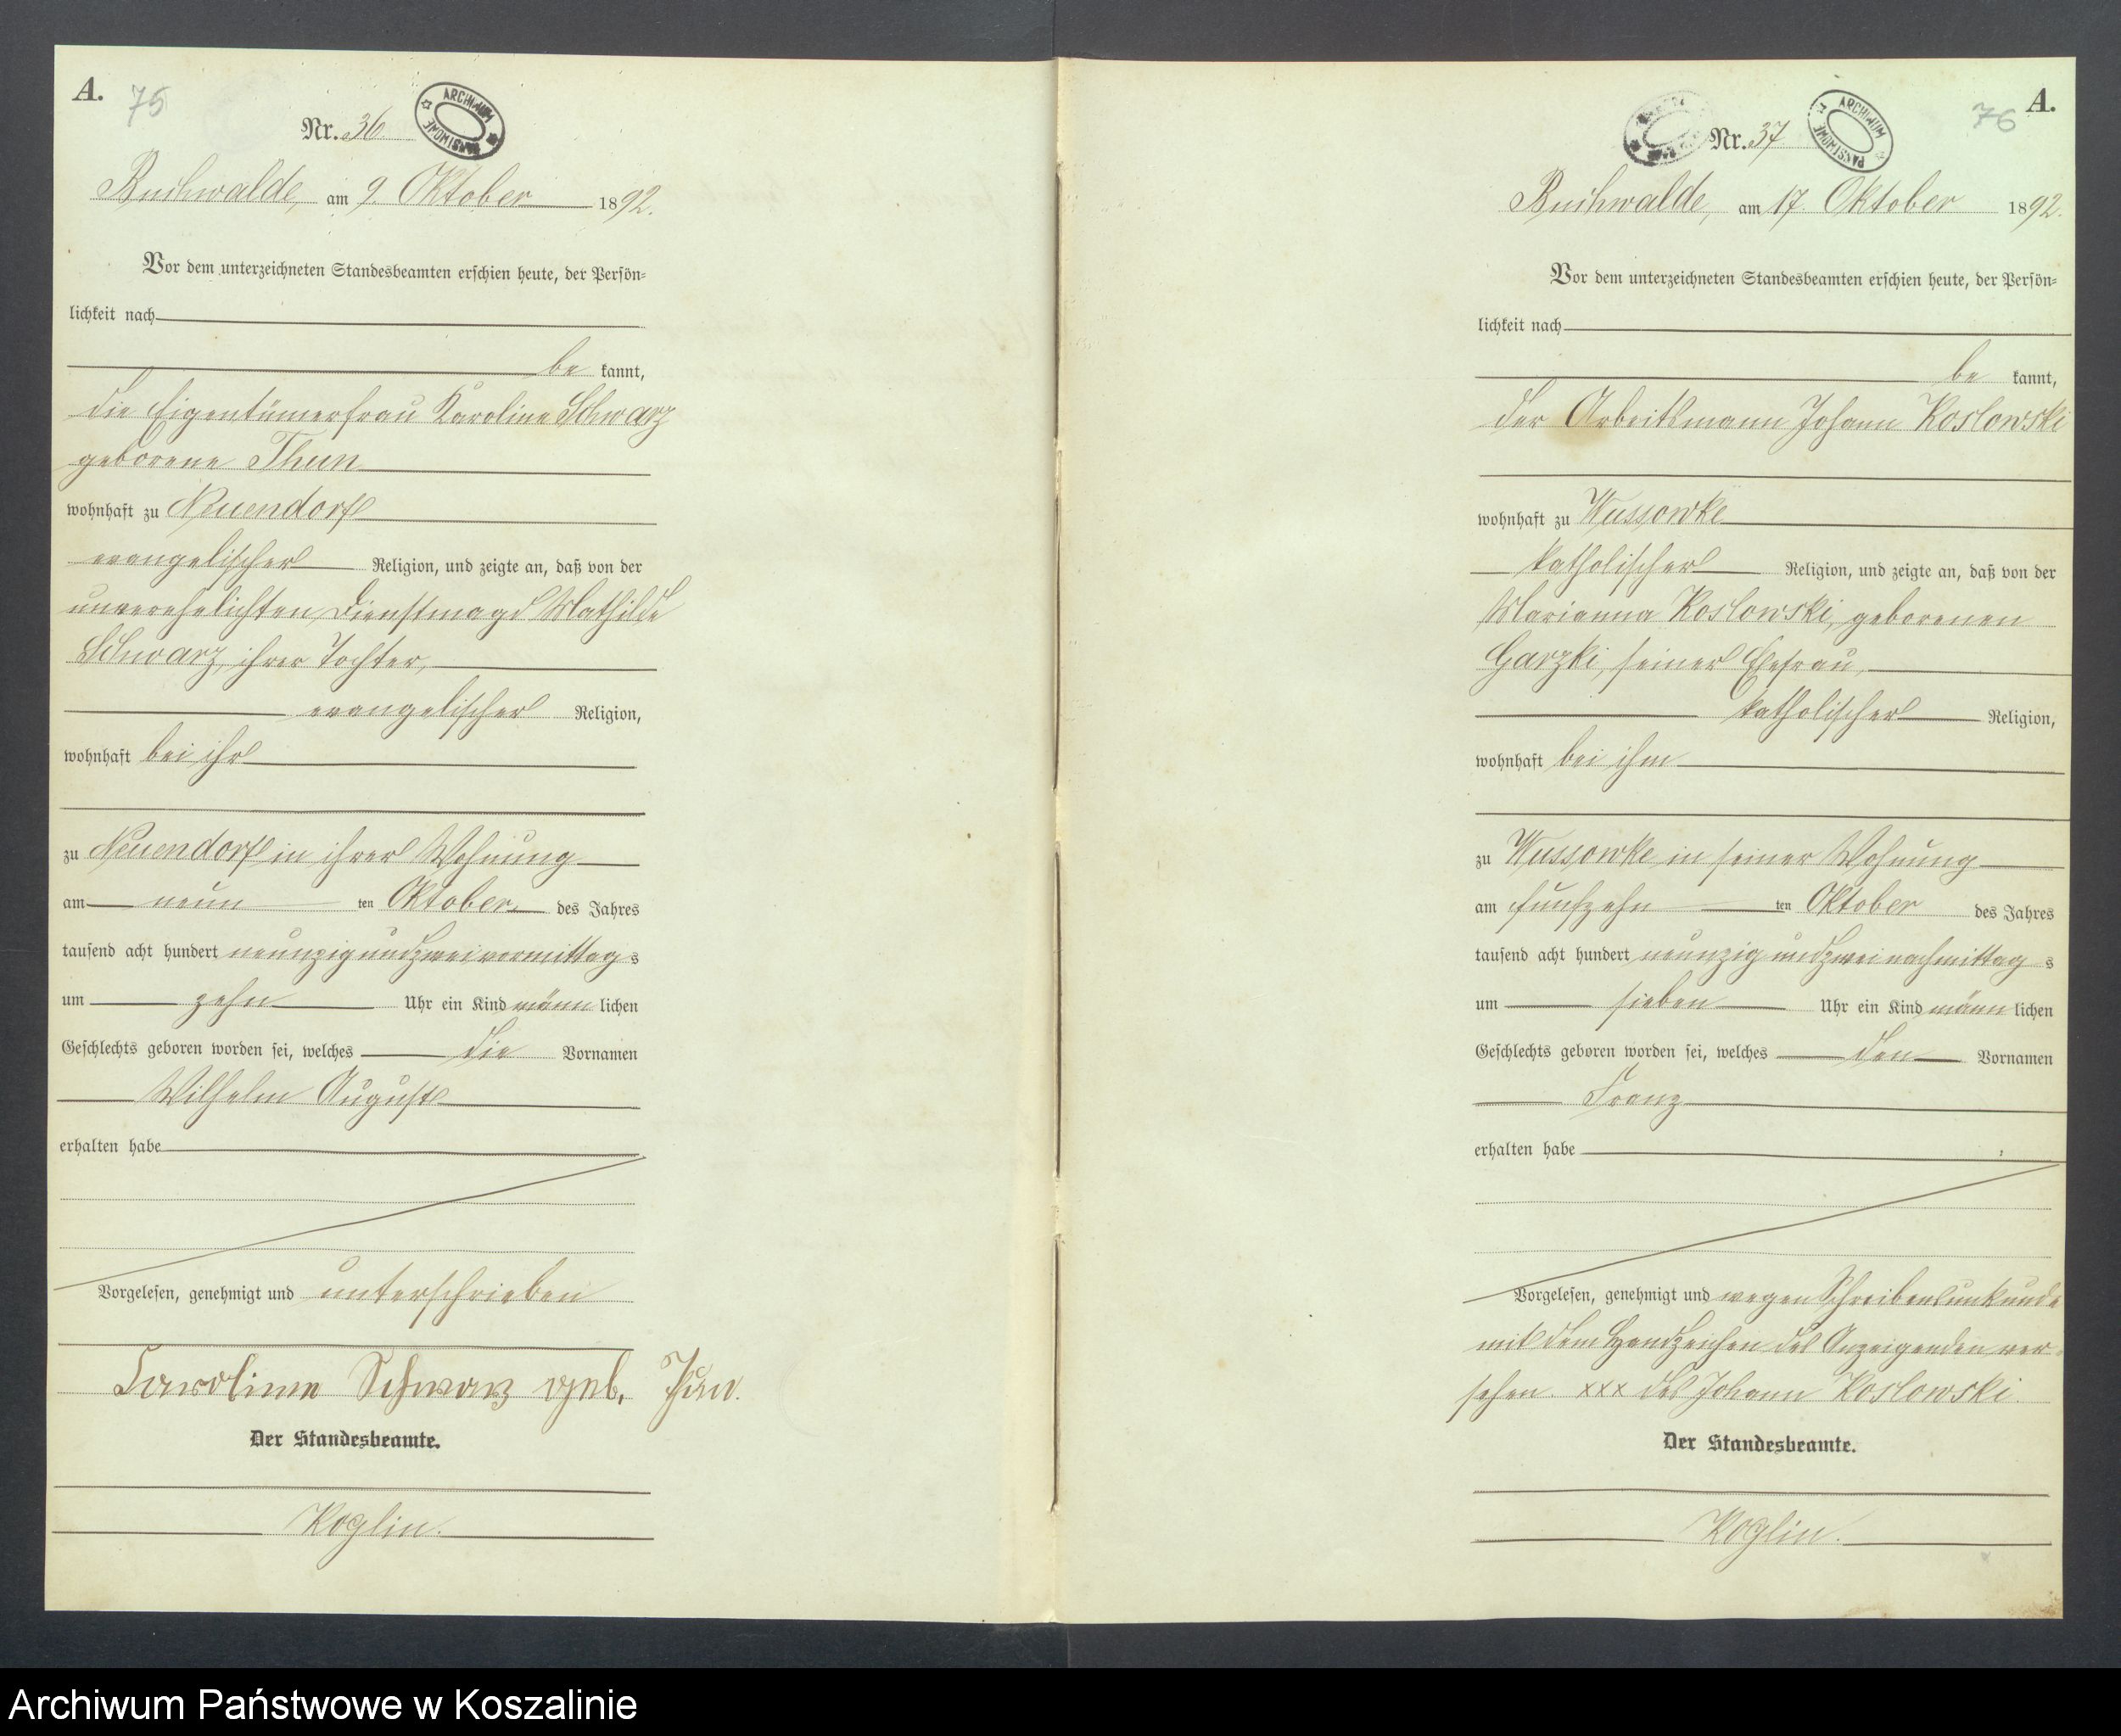 A.
75
ARCHIWUM PAŃSTWOWE
Nr. 36
Buchwalde, am 9. Oktober 1892.
Vor dem unterzeichneten Standesbeamten erschien heute, der Persön-
lichkeit nach
be kannt,
die Eigentümerfrau Karoline Schwarz
geborene Thun
wohnhaft zu Neuendorf
evangelischer Religion, und zeigte an, daß von der
unverehelichten Dienstmagd Mathilde
Schwarz, ihrer Tochter,
evangelischer Religion,
wohnhaft bei ihr
zu Neuendorf in ihrer Wohnung
am neun ten Oktober des Jahres
tausend acht hundert neunzig und zwei vormittag s
um zehn Uhr ein Kind männ lichen
Geschlechts geboren worden sei, welches die Vornamen
Wilhelm August
erhalten habe
Vorgelesen, genehmigt und unterschrieben
Caroline Schwarz geb.
Der Standesbeamte.
Koglin.
A.
76
ARCHIWUM PAŃSTWOWE
Nr. 37
Buchwalde, am 17. Oktober 1892.
Vor dem unterzeichneten Standesbeamten erschien heute, der Persön-
lichkeit nach
be kannt,
der Arbeitsmann Johann Koslowski
wohnhaft zu Wussowke
katholischer Religion, und zeigte an, daß von der
Marianna Koslowski, geborenen
Garzki, seiner Ehefrau,
katholischer Religion,
wohnhaft bei ihm
zu Wussowke in seiner Wohnung
am fünfzehn ten Oktober des Jahres
tausend acht hundert neunzig und zwei nachmittag s
um sieben Uhr ein Kind männ lichen
Geschlechts geboren worden sei, welches den Vornamen
Franz
erhalten habe
Vorgelesen, genehmigt und wegen Schreibensunkunde
mit dem Handzeichen des Anzeigenden ver-
sehen. xxx des Johann Koslowski.
Der Standesbeamte.
Koglin.
Archiwum Państwowe w Koszalinie